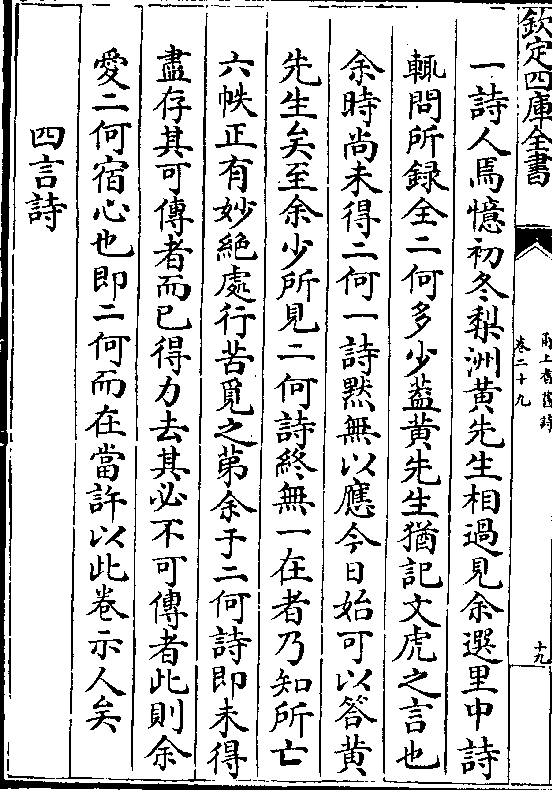 欽定四庫全書
甬上耆舊詩
卷二十九
十九
一詩人焉憶初冬梨洲黄先生相過見余選里中詩
輒問所録全二何多少葢黄先生猶記文虎之言也
余時尚未得二何一詩黙無以應今日始可以答黄
先生矣至余少所見二何詩終無一在者乃知所亡
六帙正有妙絶處行苦覓之第余于二何詩即未得
盡存其可傳者而已得力去其必不可傳者此則余
愛二何宿心也即二何而在當許以此卷示人矣
四言詩